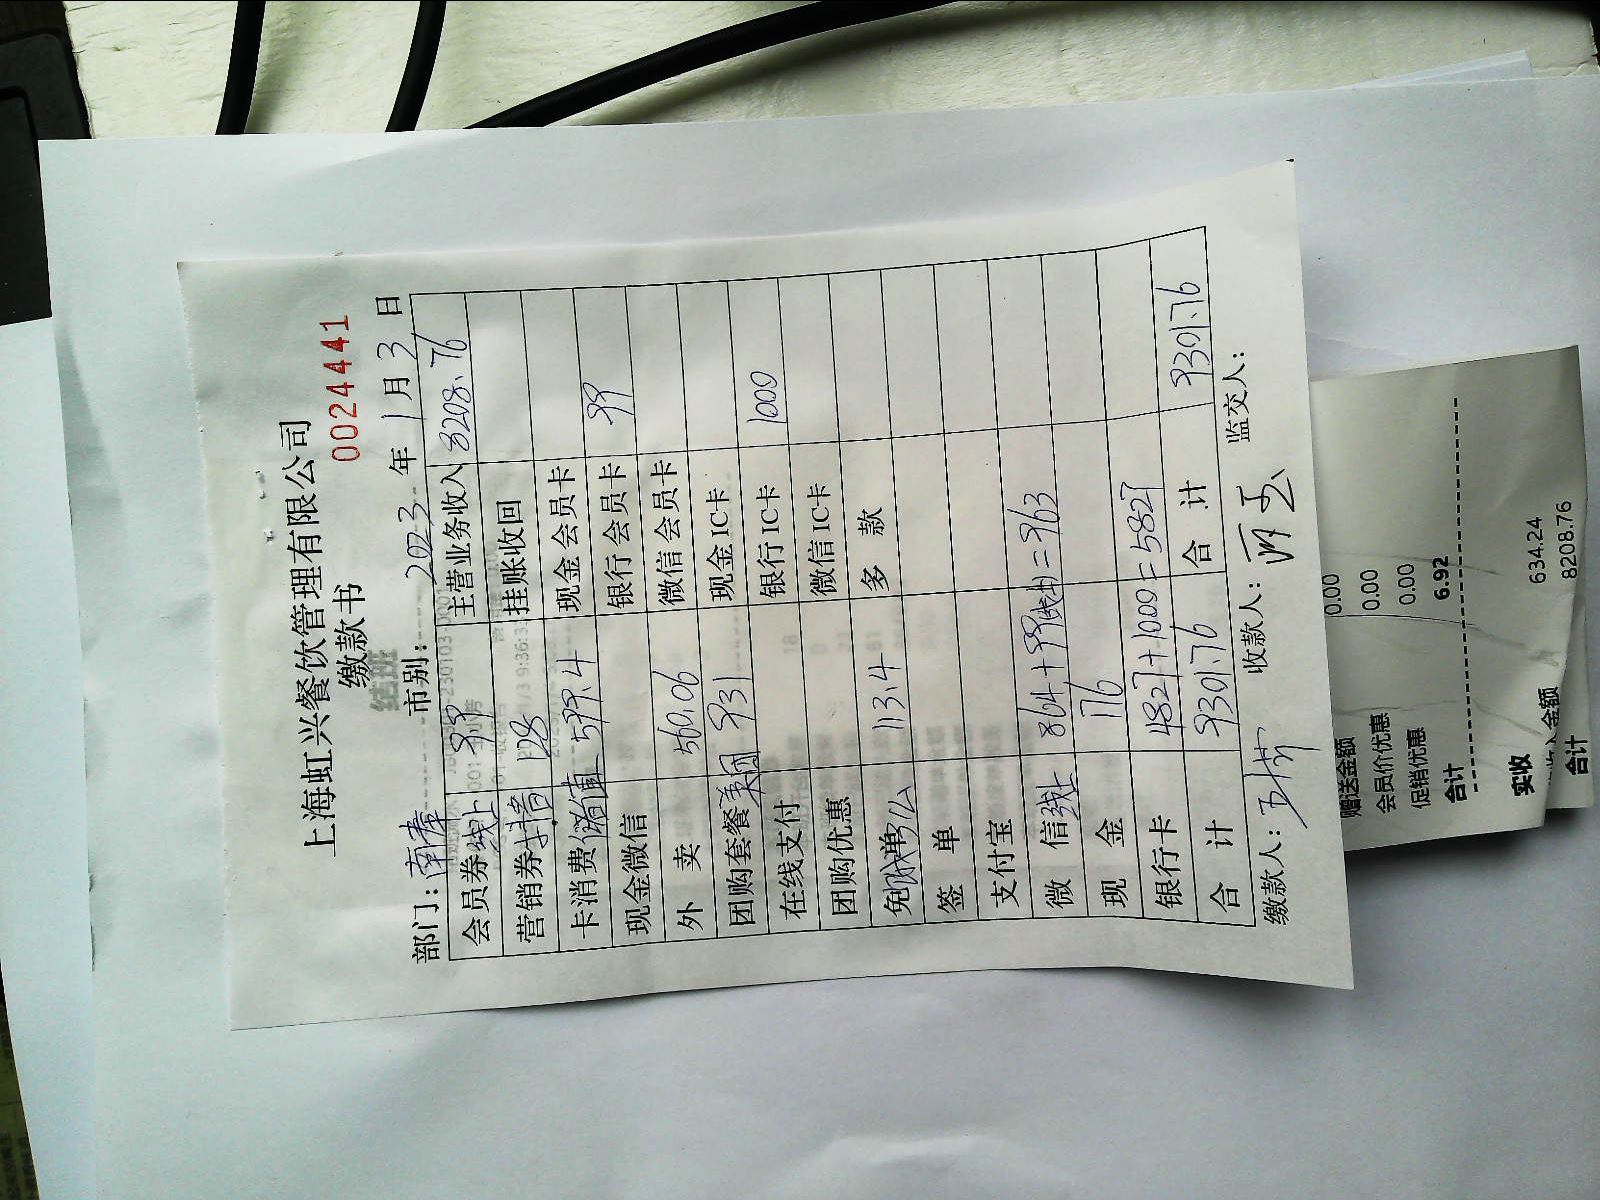 上海虹兴餐饮管理有限公司
缴款书 0024441
部门：南 市别： 2023 年 1 月 3 日
会员券线上 93 主营业务收入 8208.76
营销券抖音 128 挂账收回
卡消费储值 599.4 现金会员卡
现金微信 银行会员卡 99
外 卖 560.06 微信会员卡
团购套餐美团 931 现金IC卡
在线支付 银行IC卡 1000
团购优惠 微信IC卡
免 单 113.4 多 款
签 单
支付宝
微 信线上 864+99(线上)=963
现 金 176
银行卡 4827+1000=5827
合 计 9307.76 合 计 9307.76
缴款人： 收款人： 监交人：
结班
赠送金额 0.00
会员价优惠 0.00
促销优惠 0.00
合计 6.92
实收 634.24
合计 8208.76